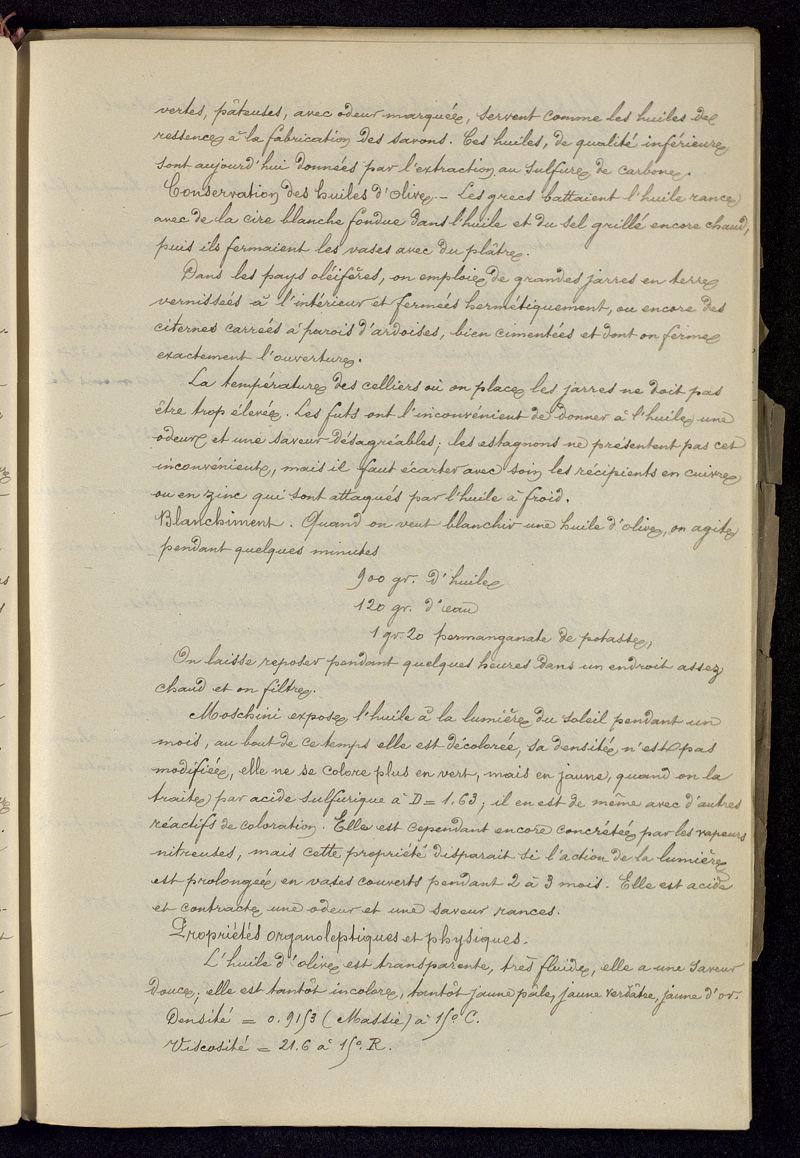 vertes, pâteuses, avec odeur marquée, servent comme les huiles de
ressence à la fabrication des savons. Ces huiles, de qualité inférieure
sont aujourd'hui données par l'extraction au sulfure de carbone.
Conservation des huiles d'Olive. – Les grecs battaient l'huile rance
avec de la cire blanche fondue dans l'huile et du sel grillé encore chaud,
puis ils fermaient les vases avec du plâtre.
Dans les pays oléifères, on emploie de grandes jarres en terre
vernissées à l'intérieur et fermées hermétiquement, ou encore des
citernes carrées à parois d'ardoises, bien cimentées et dont on ferme
exactement l'ouverture.
La température des celliers où on place les jarres ne doit pas
être trop élevée. Les futs ont l'inconvénient de donner à l'huile une
odeur et une saveur désagréables; les estagnons ne présentent pas cet
inconvénient, mais il faut écarter avec soin les récipients en cuivre
ou en zinc qui sont attaqués par l'huile à froid.
Blanchiment. Quand on veut blanchir une huile d'olive, on agite
pendant quelques minutes
900 gr. d'huile
120 gr. d'eau
1 gr. 20 permanganate de potasse,
On laisse reposer pendant quelques heures dans un endroit assez
chaud et on filtre.
Moschini expose l'huile à la lumière du soleil pendant un
mois, au bout de ce temps elle est décolorée, sa densité n'est pas
modifiée, elle ne se colore plus en vert, mais en jaune, quand on la
traite par acide sulfurique à D = 1.63; il en est de même avec d'autres
réactifs de coloration. Elle est cependant encore concrétée par les vapeurs
nitreuses, mais cette propriété disparait si l'action de la lumière
est prolongée en vases couverts pendant 2 à 3 mois. Elle est acide
et contracte une odeur et une saveur rances.
Propriétés organoleptiques et physiques.
L'huile d'olive est transparente, très fluide, elle a une saveur
douce; elle est tantôt incolore, tantôt jaune pâle, jaune verdâtre, jaune d'or.
Densité = 0.9153 (Massie) à 15° C.
Viscosité = 21.6 à 15°. R.